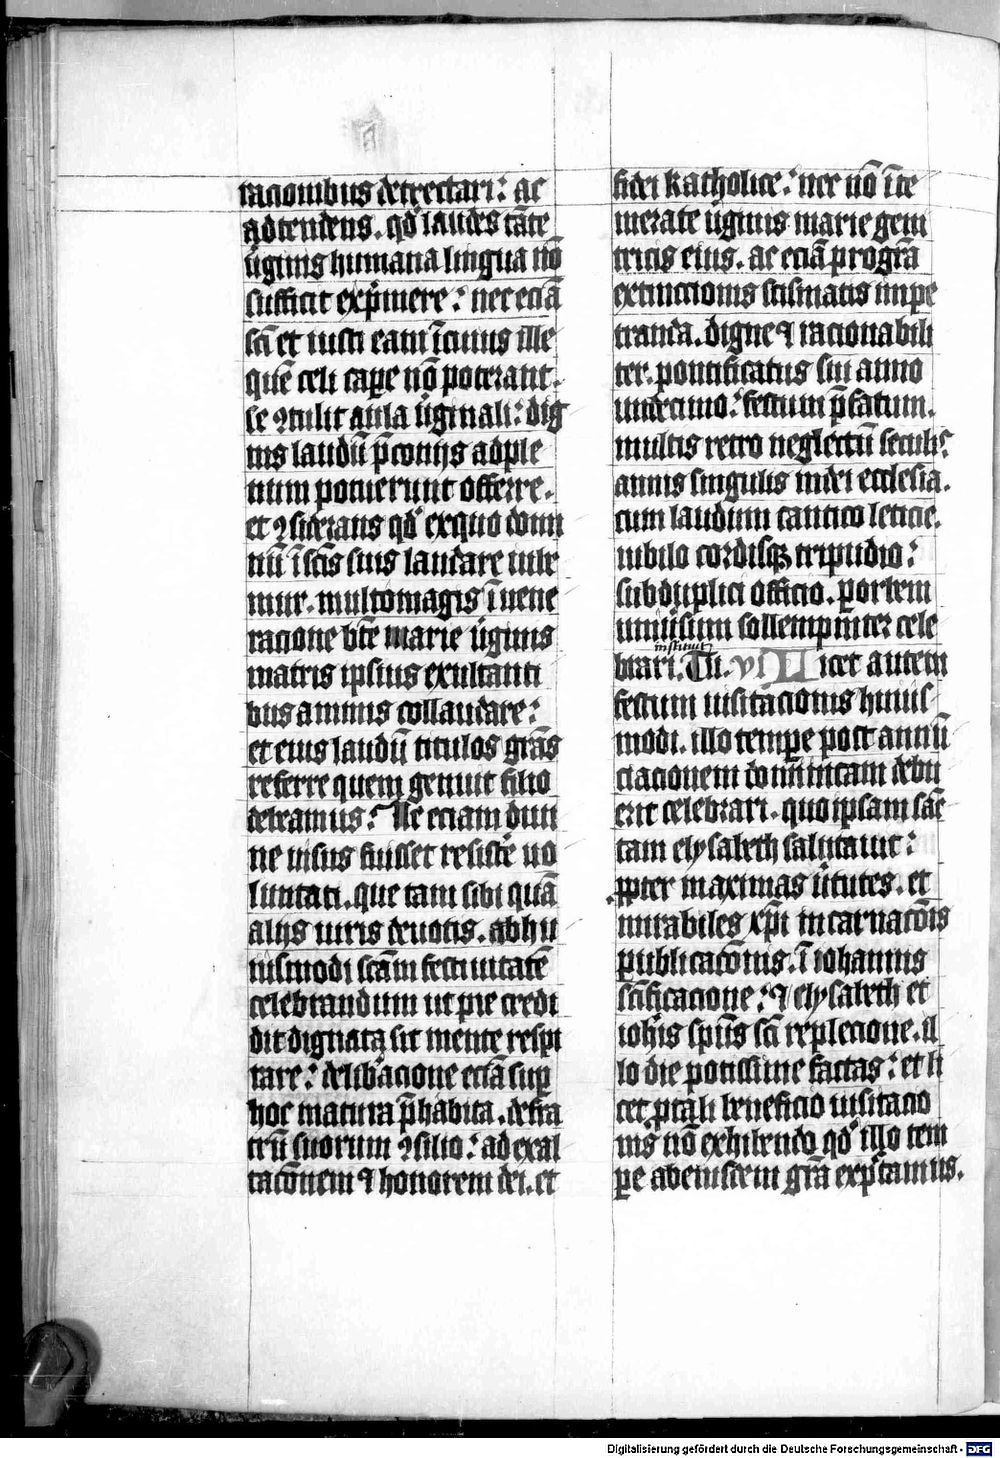 racionibus detrectari: ac
adtendens. qd̄ laudes tāte
ūginis humana lingua nō
sufficit exp̄mere: nec eciā
sc̄i et iusti eam īcuius ille
quē celi cape nō poterant.
se ꝯtulit aula ūginali: dig
nis laudū p̄conijs adple
num potuerunt offerre.
et ꝯsiderans qd̄ exquo domi
nū ī sc̄is suis laudare iube
mur. multomagis ī uene
racione bt̄e marie ūginis
matris ipsius exultanti
bus animis collaudare:
et eius laudū titulos grās
referre quem genuit filio
debeamus: Ne eciam diui
ne uisus fuisset resistē uo
luntati. que tam sibi quā
alijs uiris deuotis. ab hu
iusmodi sc̄am festiuitatē
celebrandum ut pie credi
dit dignata sit mente respi
rare: delib̄acione eciā sup
hoc matura p̄habita. de fra
trū suorum ꝯsilio: ad exal
tacōnem ⁊ honorem dei. et
fidei katholice: nec nō īte
merate ūginis marie geni
tricis eius. ac eciā pro grā
extinccionis scismatis impe
tranda. digne ⁊ racionabili
ter. pontificatus sui anno
undecimo: festum p̄fatum.
multis retro neglectū seculis:
annis singulis in dei ecclesia.
cum laudum cantico leticie.
iubilo cordisqꝫ tripudio:
subduplici officio. ꝑ orbem
uniūsum sollempniter cele
brari. instituit Tu. vi Licet autem
festum uisitacionis huius
modi. illo tempe post annū
ciacionem dominicam debu
erit celebrari. quo ipsam sāc
tam elysabeth salutauit:
ꝓpter maximas ūtutes. et
mirabiles xp̄i incarnacōis
publicacōnis. ī iohannis
sc̄ificacione: ⁊ elysabeth et
ioh̄is sp̄us sc̄i replecione. il
lo die potissime factas: et li
cet ꝑtali beneficio uisitacio
nis nō exhibendo qd̄ illo tem
pe ab eius dem grā exp̄tamus.
Digitalisierung gefördert durch die Deutsche Forschungsgemeinschaft - DFG